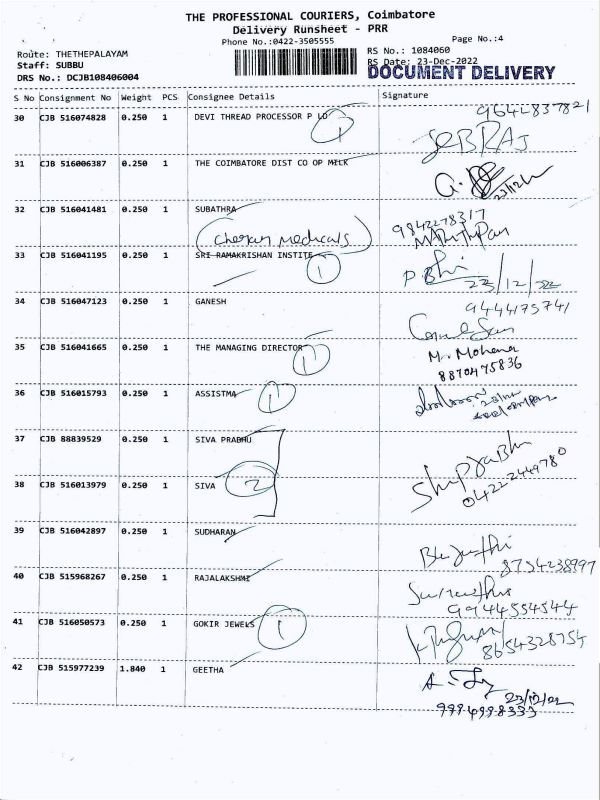 THE PROFESSIONAL COURIERS, Coimbatore
Delivery Runsheet - PRR
Phone No.:0422-3505555
Page No.:4
Route: THETHEPALAYAM
RS No.: 1084060
Staff: SUBBU
RS Date: 23-Dec-2022
DRS No.: DCJB108406004
DOCUMENT DELIVERY
S No Consignment No Weight PCS Consignee Details Signature
30 CJB 516074828 0.250 1 DEVI THREAD PROCESSOR P LD 1 9642837821
31 CJB 516006387 0.250 1 THE COIMBATORE DIST CO OP MILK
23/12/22
32 CJB 516041481 0.250 1 SUBATHRA 9842278317
Cheran Medicals
33 CJB 516041195 0.250 1 SRI RAMAKRISHAN INSTITE 1
23/12/22
34 CJB 516047123 0.250 1 GANESH 9444175741
35 CJB 516041665 0.250 1 THE MANAGING DIRECTOR 1 Mr. Mohana
8870475836
36 CJB 516015793 0.250 1 ASSISTMA 1
37 CJB 88839529 0.250 1 SIVA PRABHU
38 CJB 516013979 0.250 1 SIVA 2 04222449780
39 CJB 516042897 0.250 1 SUDHARAN
8754238997
40 CJB 515968267 0.250 1 RAJALAKSHMI
9944554544
41 CJB 516050573 0.250 1 GOKIR JEWELS 1
8654328754
42 CJB 515977239 1.840 1 GEETHA
23/12/22
9994998333